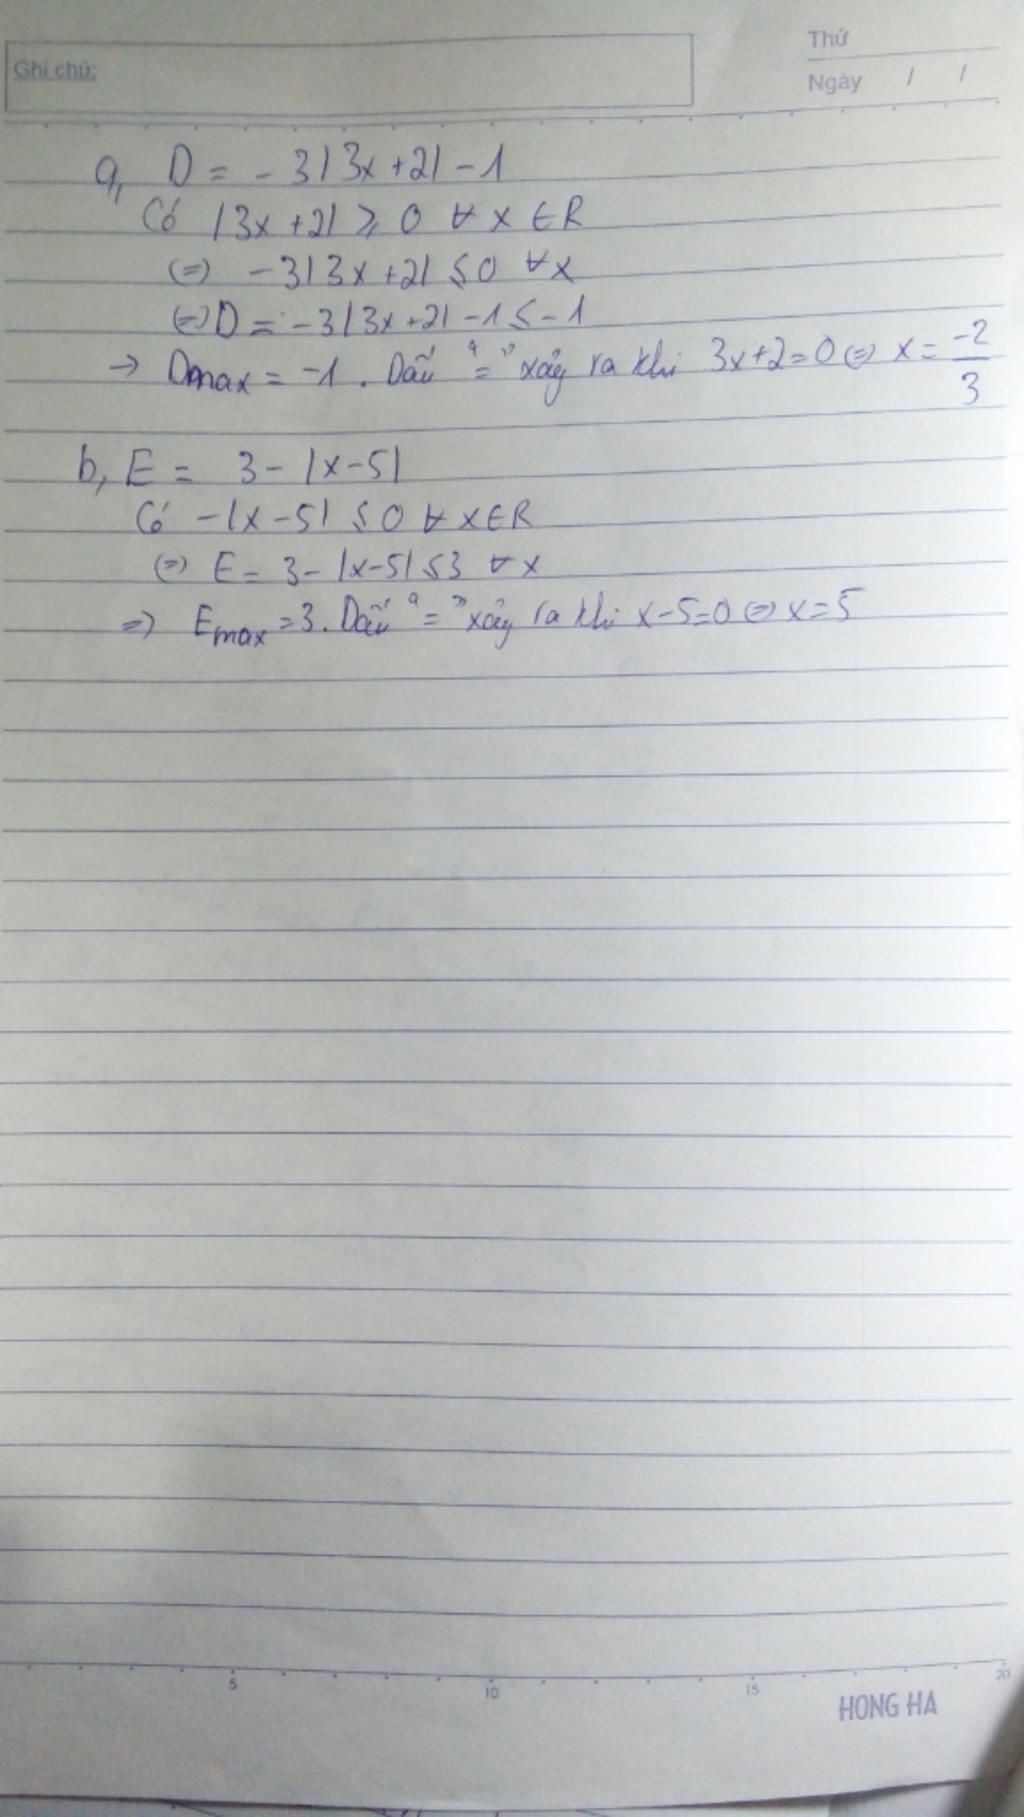 Thứ
Ghi chú:
Ngày / /
a, D = - 3|3x+2| - 1
Có |3x+2| ≥ 0 ∀ x ∈ R
(=) -3|3x+2| ≤ 0 ∀x
(=) D = -3|3x+2| - 1 ≤ -1
→ Dmax = -1. Dấu "=" xảy ra khi 3x+2=0 (=) x = -2/3
b, E = 3 - |x-5|
Có -|x-5| ≤ 0 ∀ x ∈ R
(=) E = 3 - |x-5| ≤ 3 ∀ x
=) Emax = 3. Dấu "=" xảy ra khi x-5=0 (=) x=5
5 10 15 20
HONG HA